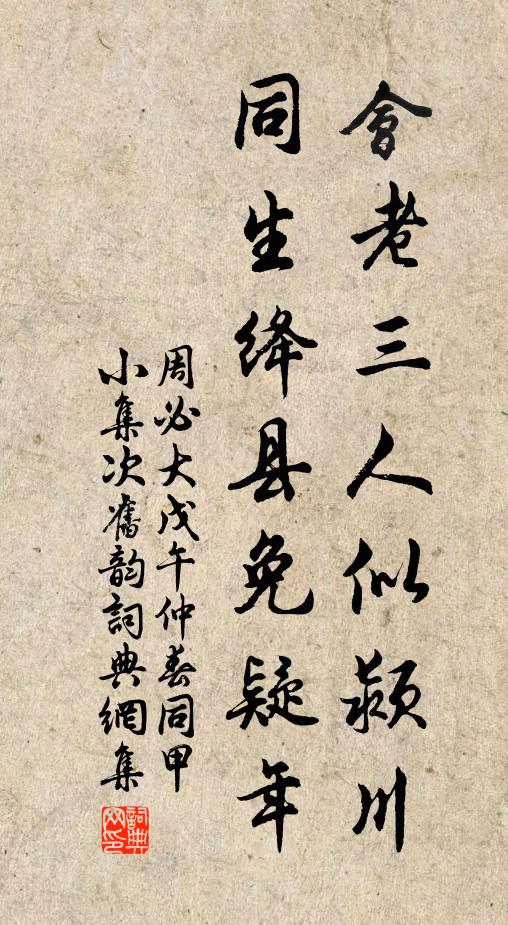 會老三人似潁川
同生绛县免疑年
周必大戊午仲春同甲
小集次舊韵詞典網集
詞典网印